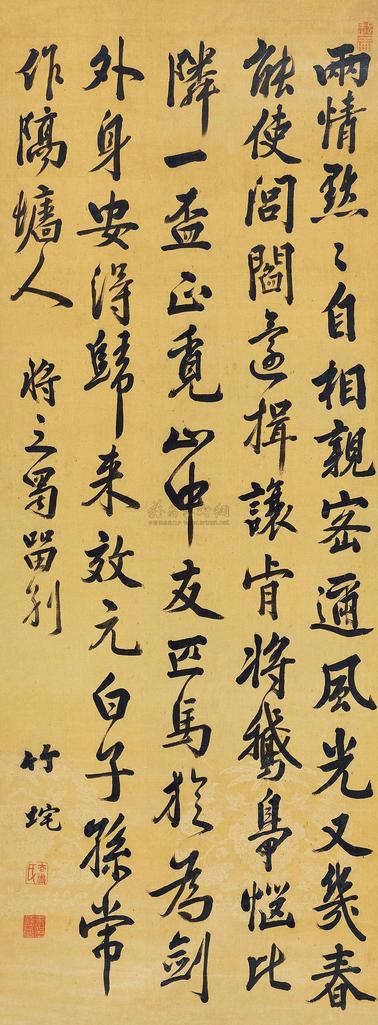 兩情黙〻自相親密邇風光又幾春
能使閭閻還揖讓肯將鵝鴨惱比
隣一盃正覓山中友匹馬旋為劍
外身安得歸来效元白子孫常
作隔墻人 將之蜀留別
竹垞